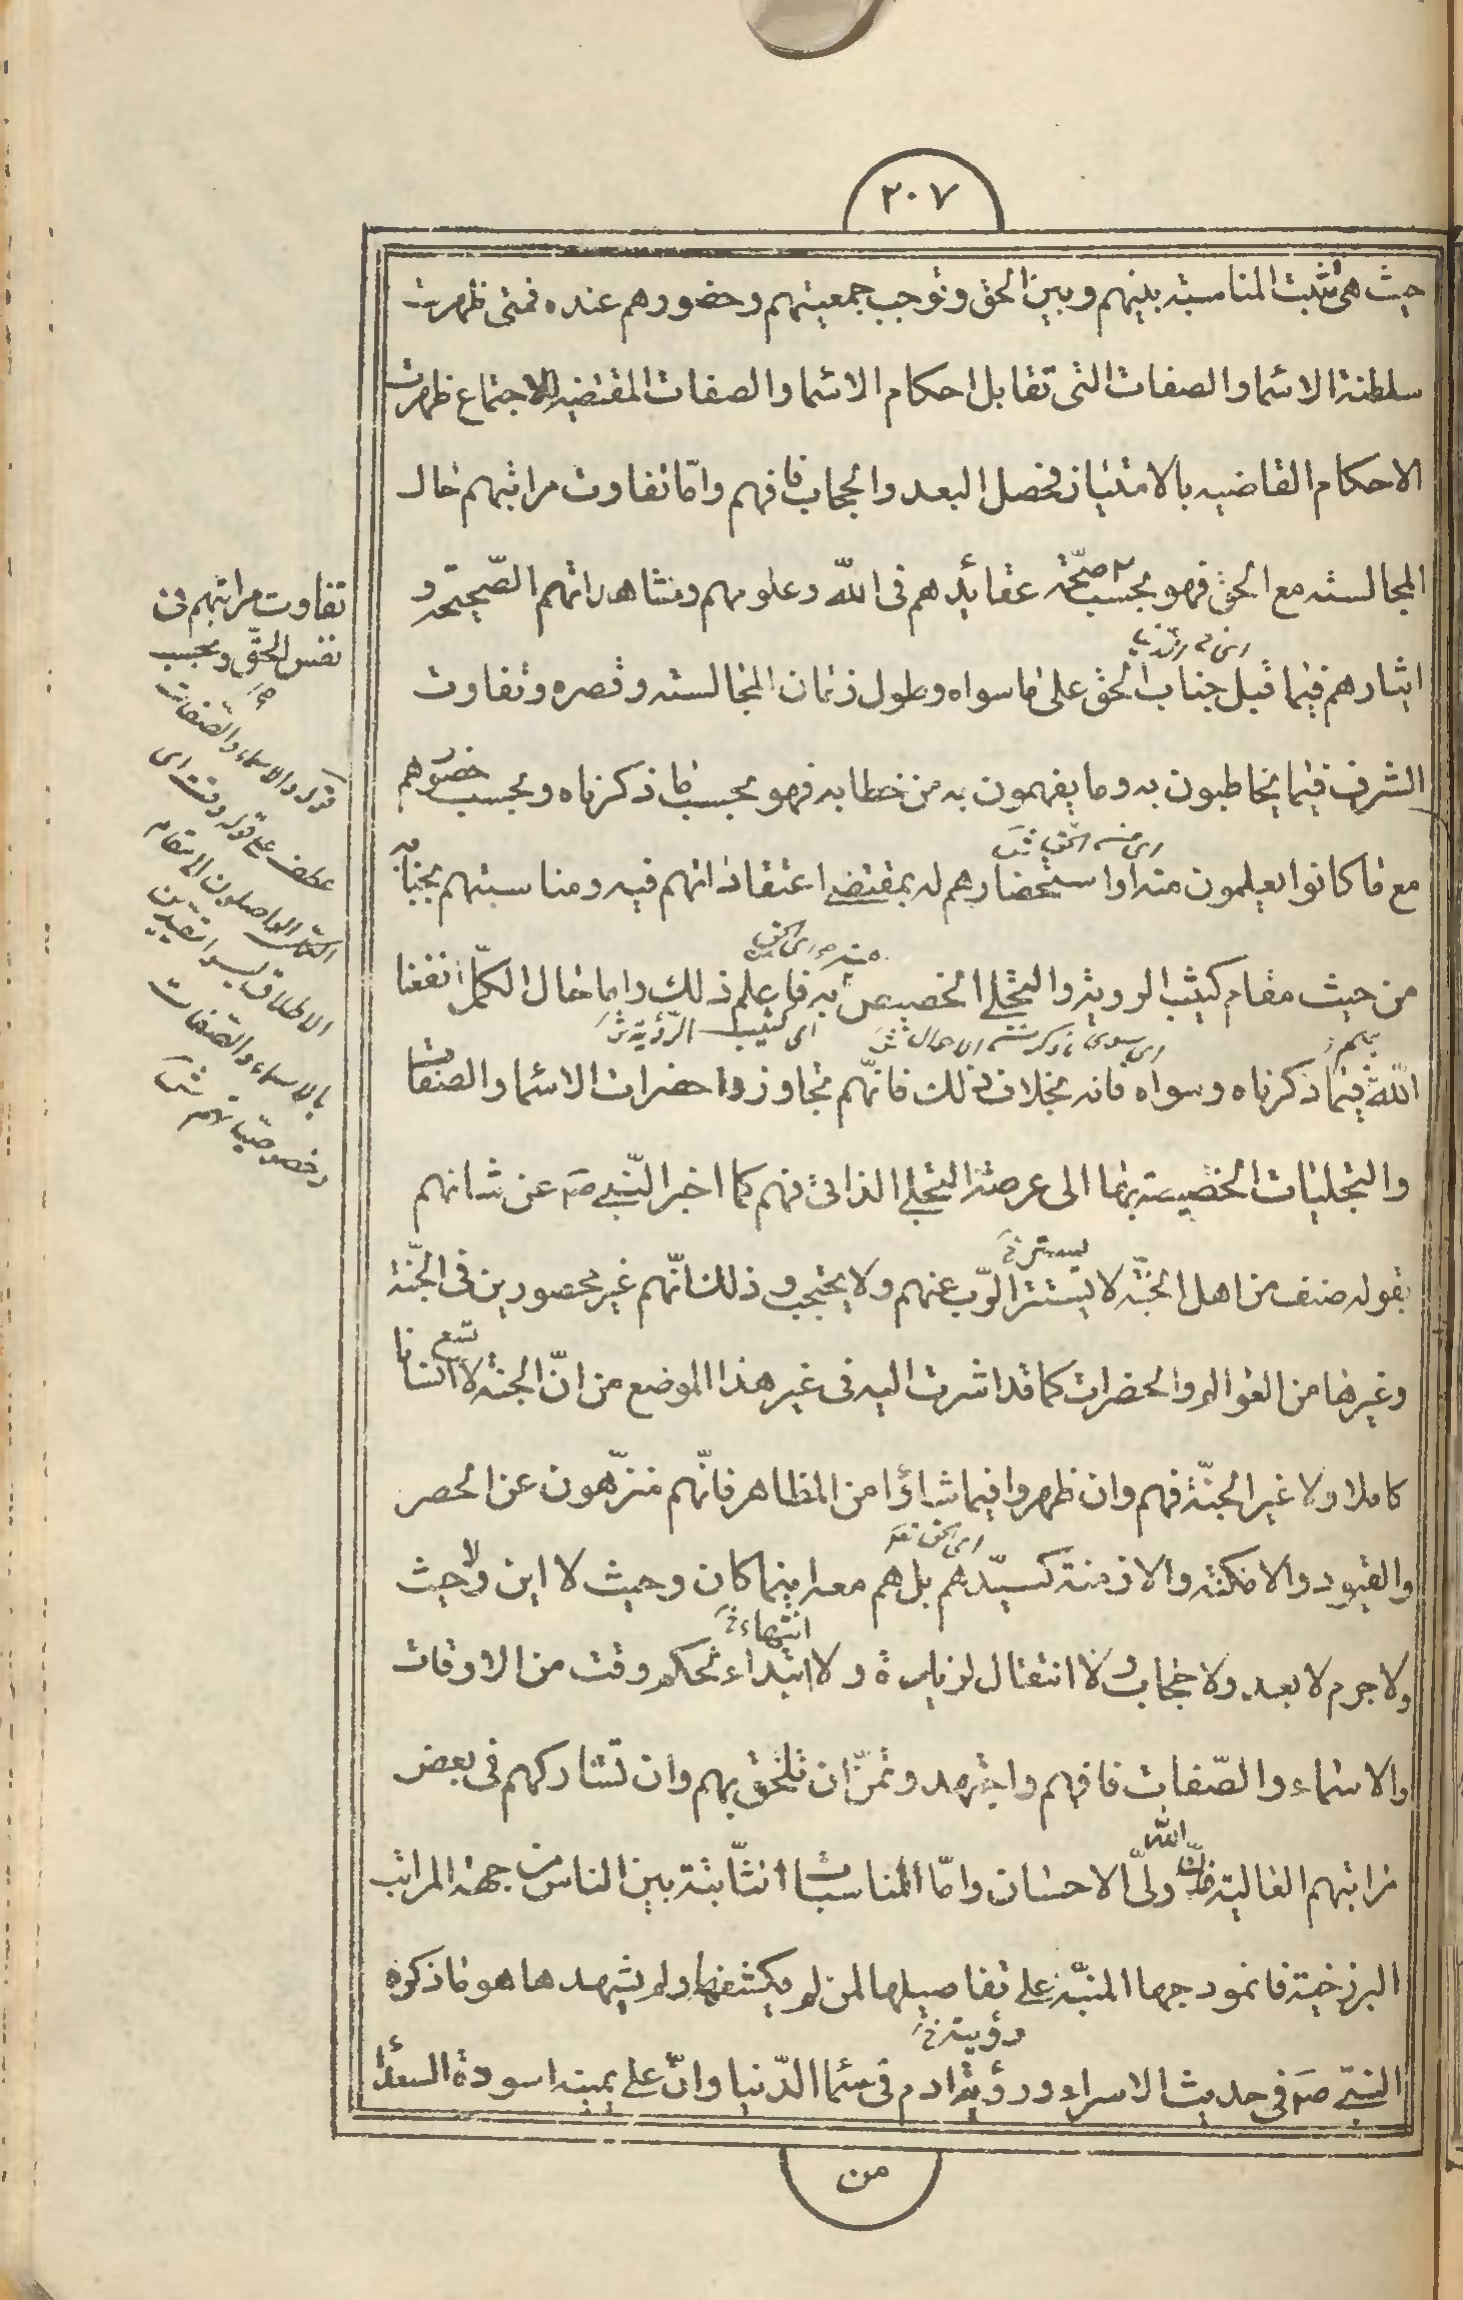 ٢٠٧
حيث هى تثبت المناسبة بينهم وبين الحق وتوجب جمعيتهم وحضورهم عنده فمتى ظهرت
سلطنة الاسما والصفات التى تقابل احكام الاسما والصفات المقتضيه للاجتماع ظهرت
الاحكام القاضيه بالامتياز فحصل البعد والحجاب فافهم وامّا تفاوت مراتبهم حال
المجالسته مع الحق فهو بحسب صحّة عقائدهم فى اللّه وعلومهم ومشاهداتهم الصّحيحة و
ايثارهم فيما قبل جناب الحق على ما سواه وطول زمان المجالسته وقصره وتفاوت
الشرف فيما يخاطبون به وما يفهمون به من خطابه فهو بحسب ما ذكرناه وبحسب حضورهم
مع ما كانوا يعلمون منه او استحضارهم له بمقتضى اعتقاداتهم فيه ومناسبتهم بجنابه
اى كثيب الرّؤية
من حيث مقام كثيب الروية والتجلى الخصيص به فاعلم ذلك واما حال الكمّل نفعنا
اللّه فيما ذكرناه وسواه فانه بخلاف ذلك فانّهم تجاوزوا حضرات الاسما والصفات
والتجليات الخصيصة بها الى عرصة التجلى الذاتى فهم كما اخبر النّبى صَم عن شانهم
يستتر خ
بقوله صنف من اهل الجنّة لا يستتر الرّب عنهم ولا يحتجب وذلك انّهم غير محصورين فى الجنّة
تسع
وغيرها من العوالم والحضرات كما قد اشرت اليه فى غير هذا الموضع من انّ الجنة لا انسانا
كاملا ولا غير الجنّة فهم وان ظهروا فيما شاؤا من المظاهر فانّهم منزّهون عن الحصر
اى الحق
والقيود والامكنة والازمنة كسيّدهم بل هم معه اينما كان وحيث لا اين ولا حيث
انتهاء خ
ولا جرم لا بعد ولا حجاب ولا انتقال لزيارة ولا ابتداء بحكم وقت من الاوقات
والاسماء والصّفات فافهم واجتهد وتمنّ ان تلحق بهم وان تشاركهم فى بعض
مراتبهم العالية فانّ اللّه ولىّ الاحسان وامّا المناسبات الثّابتة بين الناس من جهة المراتب
البرزخية فانموذجها المنبّه على تفاصيلها لمن لم يكشفها ولم يشهدها هو ما ذكره
رؤيته خ
النبى صَم فى حديث الاسراء ورؤية ادم فى سما الدّنيا وانّ على يمينه اسودة السعدا
من
تفاوت مراتبهم فى
نفس الحقّ وبحسب
قوله والاسماء والصّفات
عطف على قوله وقت اى
الكمّل الواصلون الى مقام
الاطلاق ليسوا مقيّدين
بالاسماء والصّفات
وخصوصيّاتهم